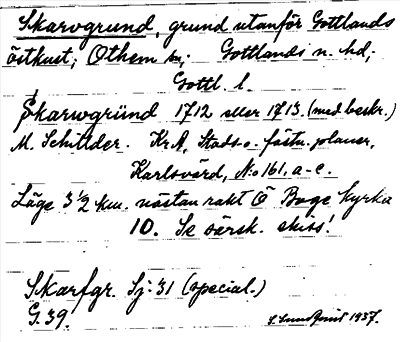 Skarvgrund, grund utanför Gottlands
östkust; Othem sn; Gottlands n. hd;
Gottl. l.
Skarwgründ 1712 eller 1713. (med beskr.)
M. Schilder. Kr.A, Stads- o. fästn. planer,
Karlsvärd, No 161, a-e.
Läge 3 1/2 km. nästan rakt Ö Boge kyrka
10. Se översk. skiss!
Skarfgr. Sj: 31 (special.)
G. 39.
S. Sundquist 1937.